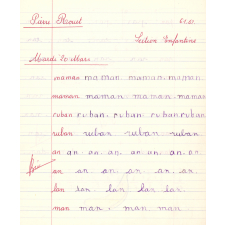 Pierre Raoul
Section Enfantine
Mardi 20 Mars
maman maman maman maman
maman maman maman maman
ruban ruban ruban ruban ruban
ruban ruban ruban ruban
an an an an an an an
an an an an an an
lan lan lan lan lan
man man man man